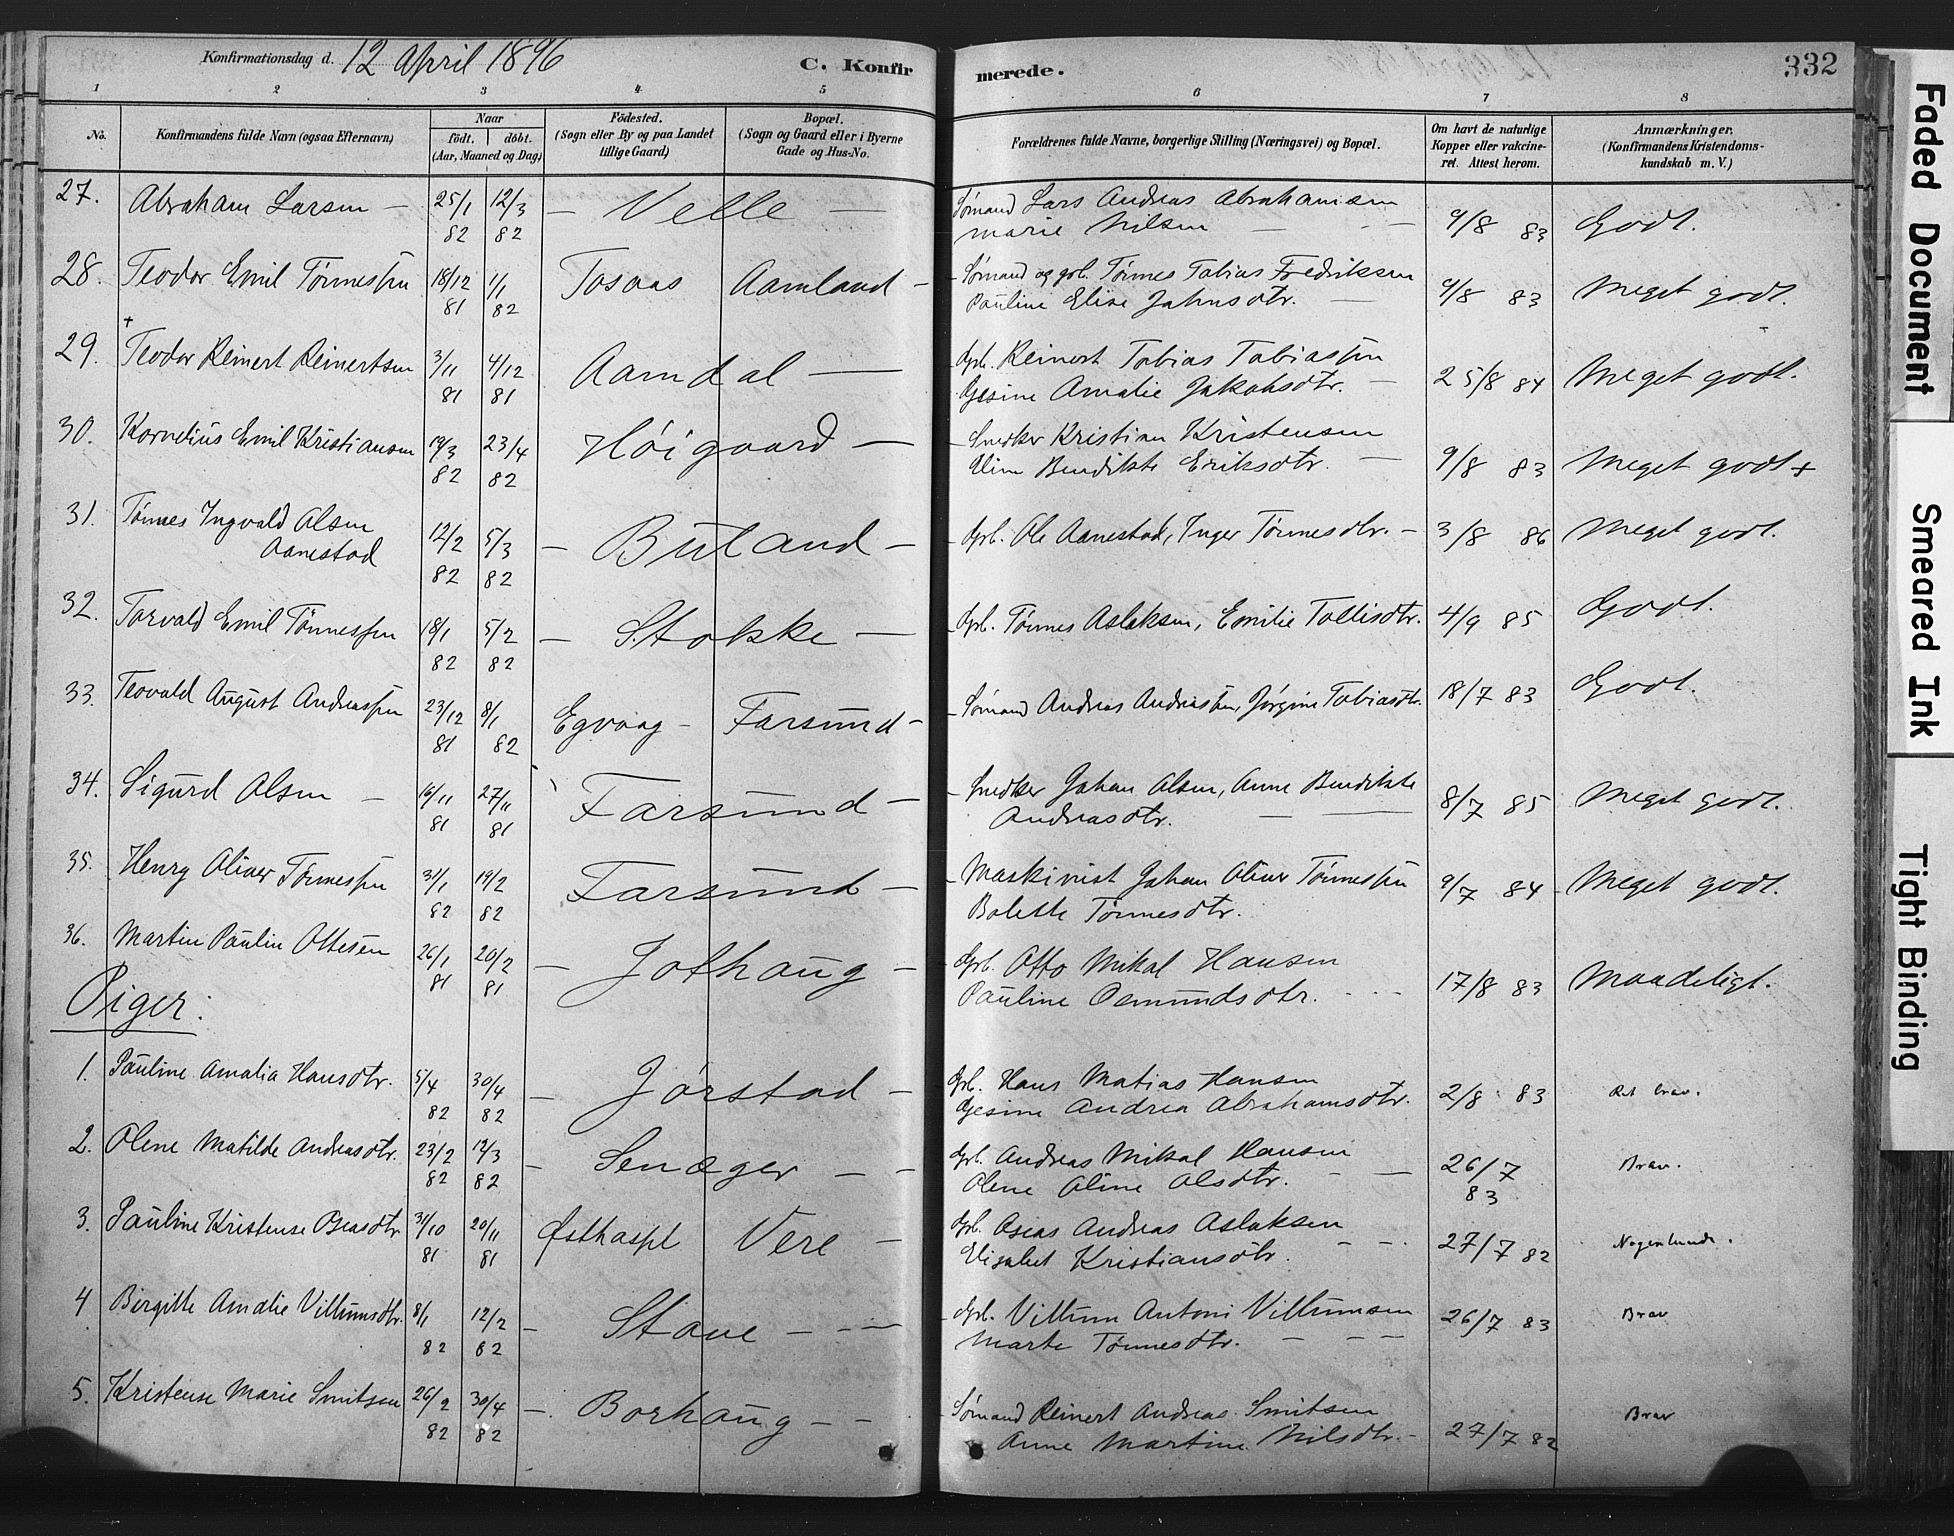 Konfirmationsdag d. 12 April 1896
C. Konfir merede.
332
1 2 3 4 5 6 7 8
No.
Konfirmandens fulde Navn (ogsaa Efternavn)
Naar
födt. döbt.
(Aar, Maaned og Dag)
Födested.
(Sogn eller By og paa Landet
tillige Gaard)
Bopæl.
(Sogn og Gaard eller i Byerne
Gade og Hus-No.
Forældrenes fulde Navne, borgerlige Stilling (Næringsvei) og Bopæl.
Om havt de naturlige
Kopper eller vakcine-
ret. Attest herom.
Anmærkninger.
(Konfirmandens Kristendoms-
kundskab m. V.)
27. Abraham Larsen — 25/1 82 12/3 82 — Velle — Sömand Lars Andreas Abrahamsen 9/8 83 Godt.
Marie Nilsen —
28. Teodor Emil Tönnessen 18/12 81 1/1 82 Tosaas Aamland — Sömand og gbl. Tönnes Tobias Fredriksen 9/8 83 Meget godt.
Pauline Elise Jahnsdtr. —
29. Teodor Reinert Reinertsen 3/11 81 4/12 81 Aamdal — Gbl. Reinert Tobias Tobiassen 25/8 84 Meget godt.
Gesine Amalie Jakobsdtr. —
30. Kornelius Emil Kristiansen 19/3 82 23/4 82 Höigaard — Snedker Kristian Kristensen 9/8 83 Meget godt +
Elin Bendikte Eriksdtr. —
31. Tönnes Ingvald Olsen
Aanestad 12/2 82 5/3 82 — Buland — Gbl. Ole Aanestad, Inger Tönnesdtr. — 3/8 86 Meget godt.
32. Torvald Emil Tönnessen 18/1 82 5/2 82 — Stokke — Gbl. Tönnes Aslaksen, Emilie Tollisdtr. 4/9 85 Godt.
33. Teovald August Andreassen 23/12 81 8/1 82 Egvaag — Farsund — Sömand Andreas Andreassen, Jörgine Tobiasdtr. 18/7 83 Godt.
34. Sigurd Olsen — 16/11 81 27/11 81 Farsund — Snedker Johan Olsen, Anne Bendikte 8/7 85 Meget godt.
Andreasdtr. —
35. Henry Oliver Tönnessen 31/1 82 19/2 82 Farsund — Maskinist Johan Oliver Tönnessen 9/7 84 Meget godt.
Bolette Tönnesdtr.
36. Martin Paulin Ottesen 26/1 81 20/2 81 — Jothaug — Gbl. Otto Mikal Hansen 17/8 83 Maadeligt.
Pauline Osmundsdtr.
Piger:
1. Pauline Amalia Hansdtr. 5/4 82 30/4 82 — Jörstad — Gbl. Hans Matias Hansen 2/8 83 Ret brav.
Gesine Andrea Abrahamsdtr.
2. Olene Matilde Andreasdtr. 23/2 82 12/3 82 — Senæger — — Gbl. Andreas Mikal Hansen 26/7 83 Brav.
Olene Oline Olsdtr.
3. Pauline Kristense Oseasdtr 31/10 81 20/11 81 Østhassel Vere — Gbl. Oseas Andreas Aslaksen 27/7 82 Nogenlunde.
Elisabet Kristiansdtr.
4 Birgitte Amalie Villumsdtr. 8/1 82 12/2 82 — Stave — Gbl. Villum Antoni Villumsen 26/7 83 Brav
Marte Tönnesdtr. —
5. Kristense Marie Smitsen 26/2 82 30/4 82 — Borhaug — — Sömand Reinert Andreas Smitsen 27/7 82 Brav
Anne Martine Nilsdtr. —
Faded Document
Smeared Ink
Tight Binding